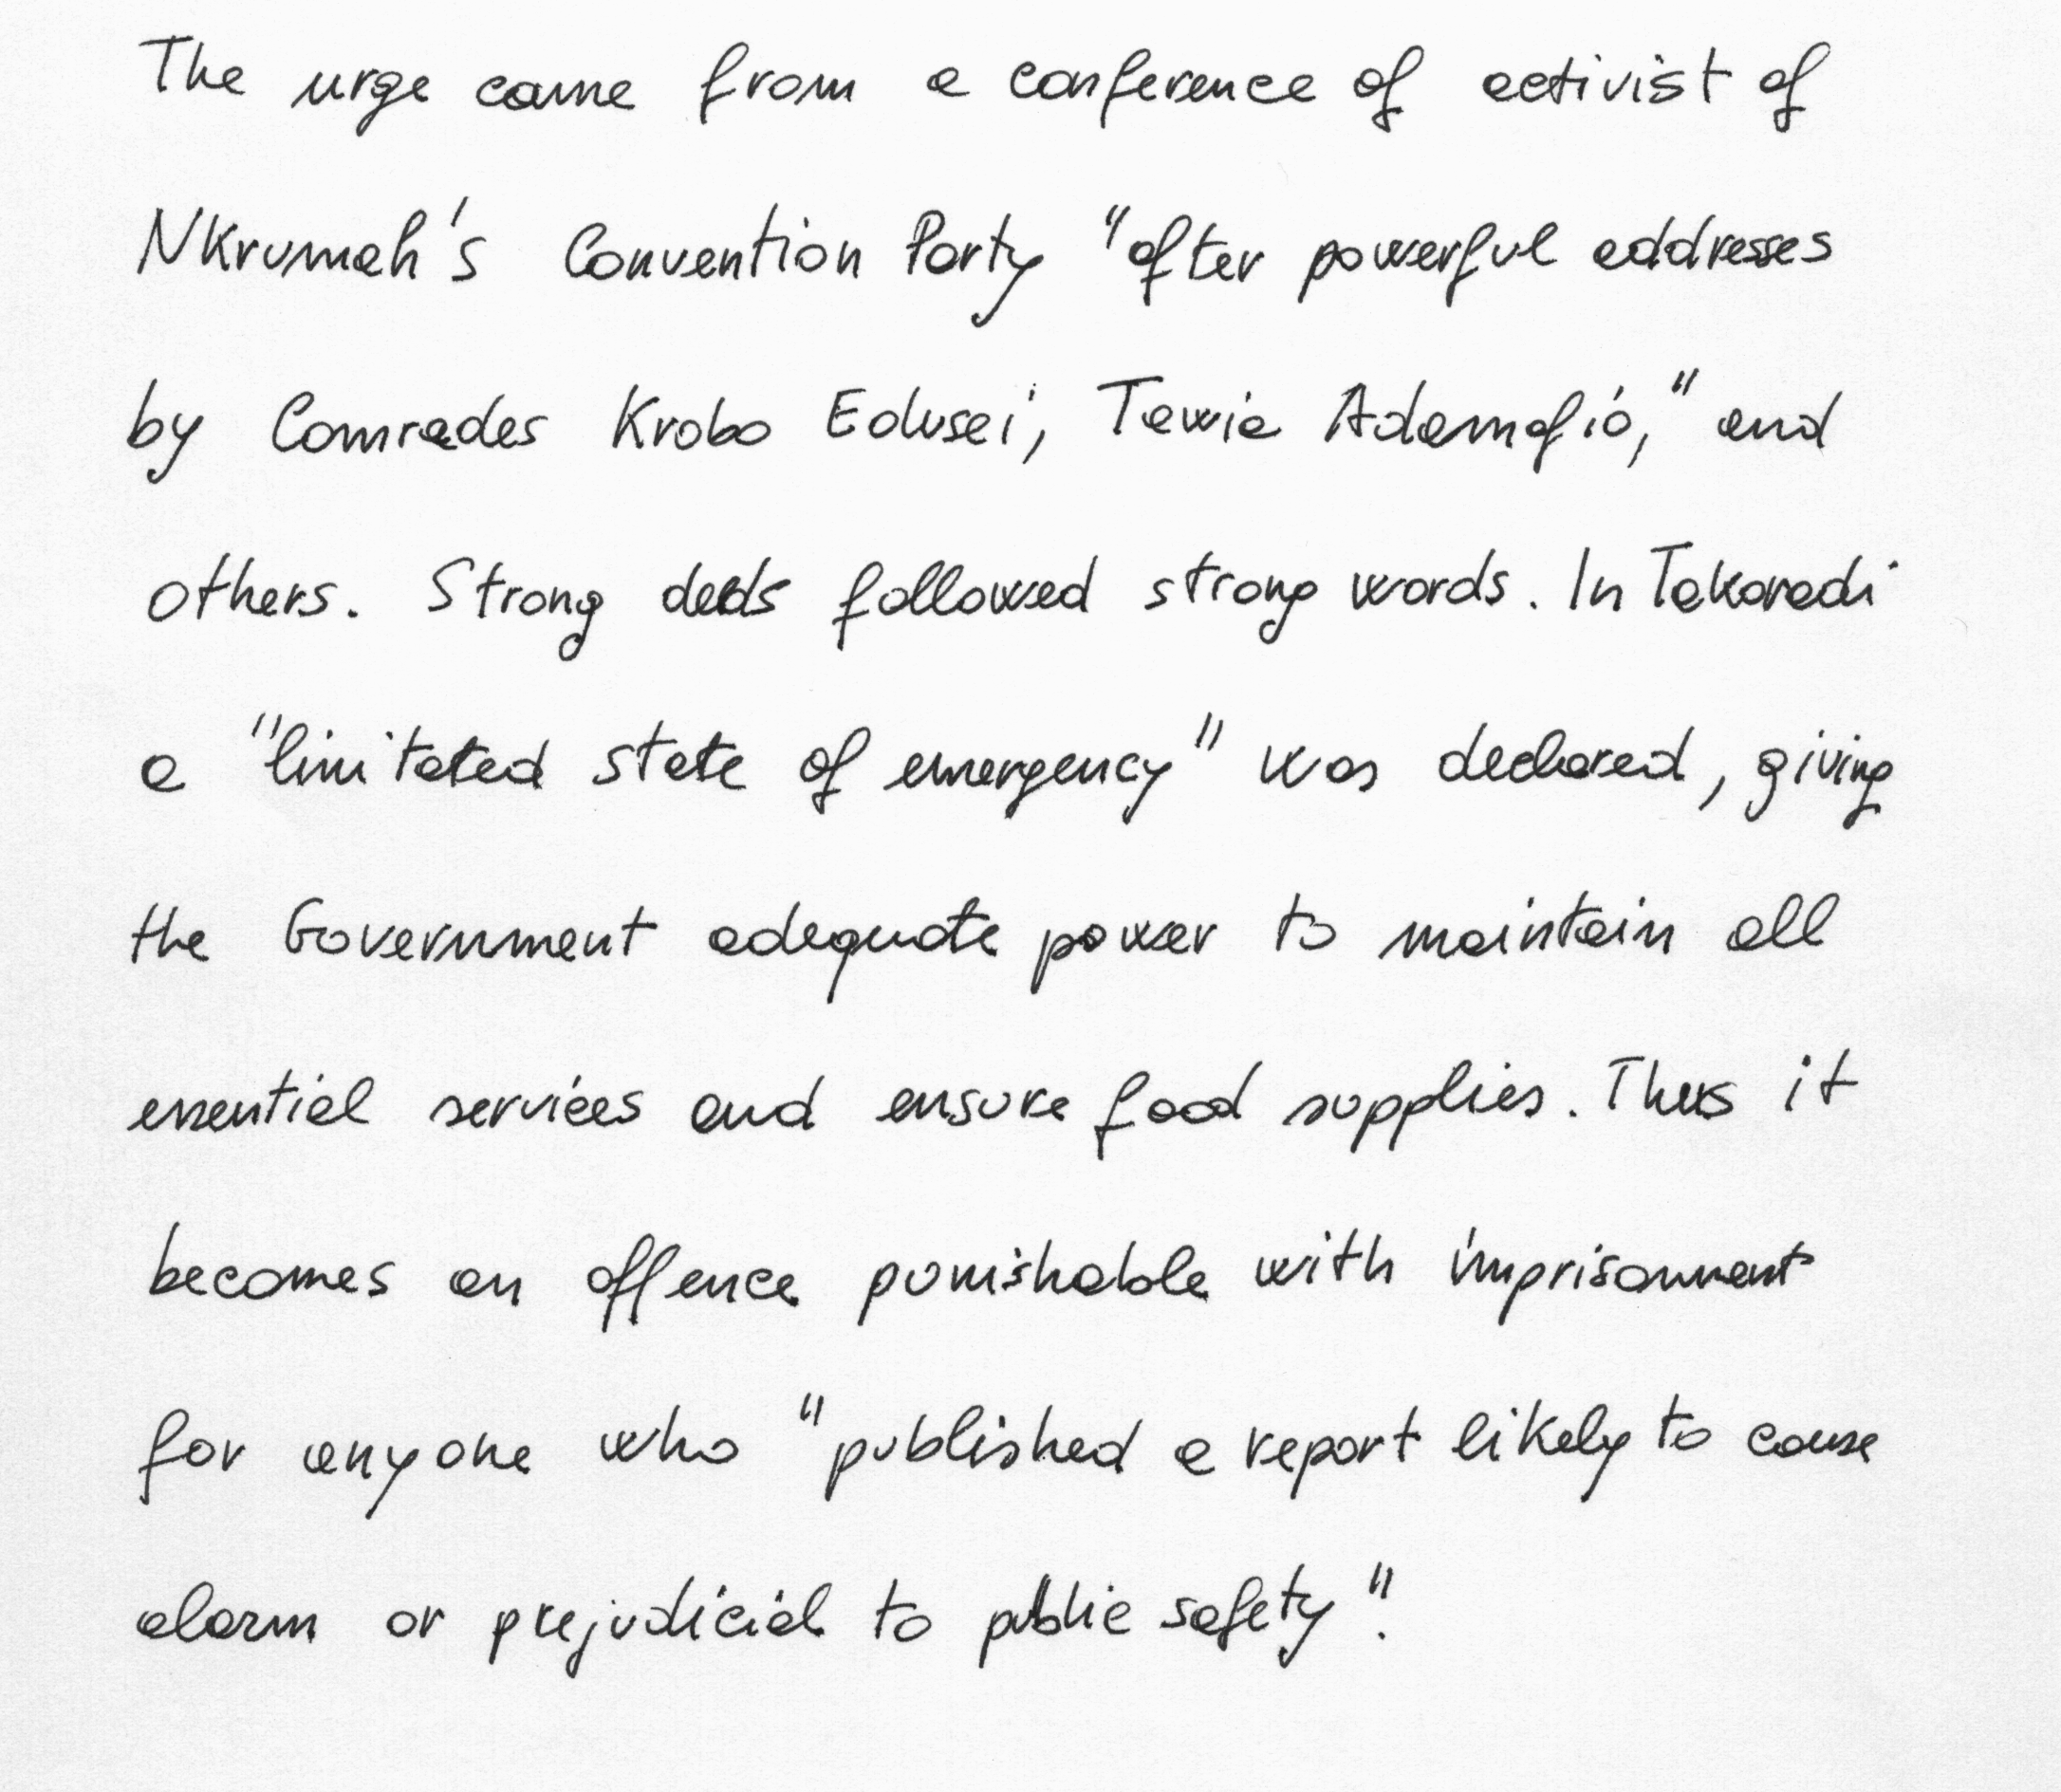 The urge came from a conference of activist of
Nkrumah's Convention Party "after powerful addresses
by Comrades Krobo Edusei, Tawia Adamafio," and
others. Strong deeds followed strong words. In Takoradi
a "limitated state of emergency" was declared, giving
the Government adequate power to maintain all
essential services and ensure food supplies. Thus it
becomes an offence punishable with imprisonment
for anyone who "published a report likely to cause
alarm or prejudicial to public safety".